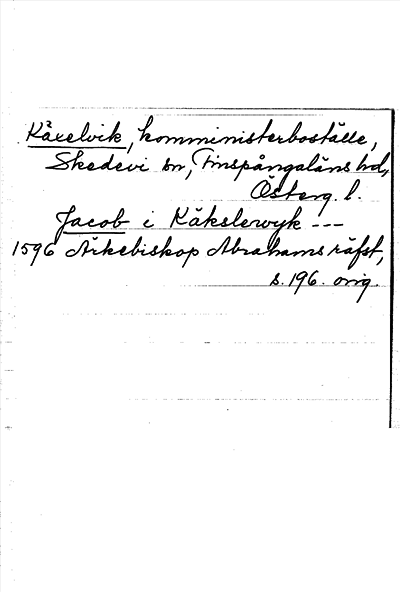 Käxelvik, komministerboställe,
Skedevi sn, Finspångaläns hd,
Österg. l.
Jacob i Käkslewyk ---
1596 Ärkebiskop Abrahams räfst,
s. 196. orig.